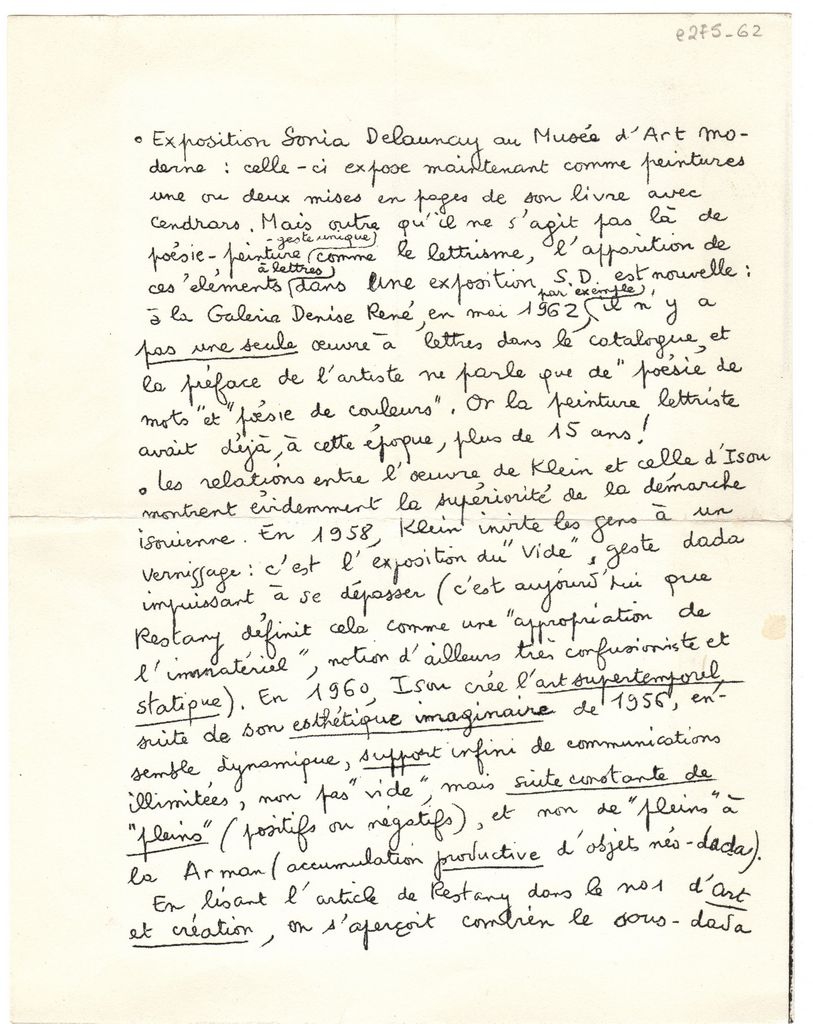 e275-62
• Exposition Sonia Delaunay au Musée d'Art mo-
derne : celle-ci expose maintenant comme peintures
une ou deux mises en pages de son livre avec
Cendrars. Mais outre qu'il ne s'agit pas là de
poésie-peinture (-geste unique) comme le lettrisme, l'apparition de
ces éléments (à lettres) dans une exposition S.D. est nouvelle :
à la Galerie Denise René, en mai 1962 (par exemple), il n'y a
pas une seule œuvre à lettres dans le catalogue, et
la préface de l'artiste ne parle que de "poésie de
mots" et "poésie de couleurs". Or la peinture lettriste
avait déjà, à cette époque, plus de 15 ans !
• Les relations entre l'œuvre de Klein et celle d'Isou
montrent évidemment la supériorité de la démarche
isouienne. En 1958, Klein invite les gens à un
vernissage : c'est l'exposition du "Vide", geste dada
impuissant à se dépasser (c'est aujourd'hui que
Restany définit cela comme une "appropriation de
l'immatériel", notion d'ailleurs très confusionniste et
statique). En 1960, Isou crée l'art supertemporel,
suite de son esthétique imaginaire de 1956, en-
semble dynamique, support infini de communications
illimitées, non pas "vide", mais suite constante de
"pleins" (positifs ou négatifs), et non de "pleins" à
la Arman (accumulation productive d'objets néo-dada).
En lisant l'article de Restany dans le no 1 d'Art
et création, on s'aperçoit combien le sous-dada